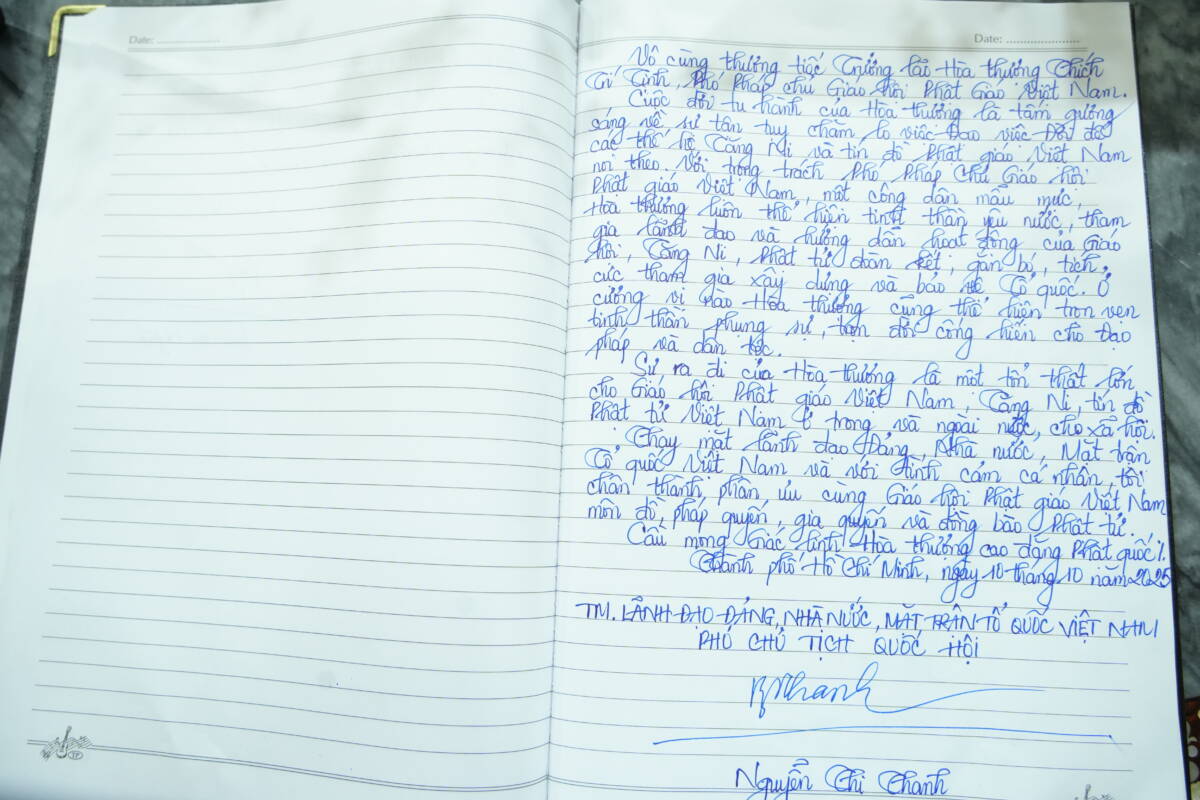 Date: ....................
Date: ....................
Vô cùng thương tiếc Trưởng lão Hòa thượng Thích
Trí Tịnh, Phó Pháp chủ Giáo hội Phật Giáo Việt Nam.
Cuộc đời tu hành của Hòa thượng là tấm gương
sáng về sự tận tụy chăm lo việc Đạo việc Đời để
các thế hệ Tăng Ni và tín đồ Phật giáo Việt Nam
noi theo. Với trọng trách Phó Pháp Chủ Giáo hội
Phật giáo Việt Nam, một công dân mẫu mực,
Hòa thượng luôn thể hiện tinh thần yêu nước, tham
gia lãnh đạo và hướng dẫn hoạt động của Giáo
hội, Tăng Ni, Phật tử đoàn kết, gắn bó, tích
cực tham gia xây dựng và bảo vệ Tổ quốc. Ở
cương vị nào Hòa thượng cũng thể hiện trọn vẹn
tinh thần phụng sự, trọn đời cống hiến cho Đạo
pháp và dân tộc.
Sự ra đi của Hòa thượng là một tổn thất lớn
cho Giáo hội Phật giáo Việt Nam, Tăng Ni, tín đồ
Phật tử Việt Nam ở trong và ngoài nước, cho xã hội.
Thay mặt lãnh đạo Đảng, Nhà nước, Mặt trận
Tổ quốc Việt Nam và với tình cảm cá nhân, tôi
chân thành phân ưu cùng Giáo hội Phật giáo Việt Nam
môn đồ, pháp quyến, gia quyến và đồng bào Phật tử.
Cầu mong Giác linh Hòa thượng cao đăng Phật quốc./.
Thành phố Hồ Chí Minh, ngày 10 tháng 10 năm 2025
TM. LÃNH ĐẠO ĐẢNG, NHÀ NƯỚC, MẶT TRẬN TỔ QUỐC VIỆT NAM
PHÓ CHỦ TỊCH QUỐC HỘI
Nguyễn Thị Thanh